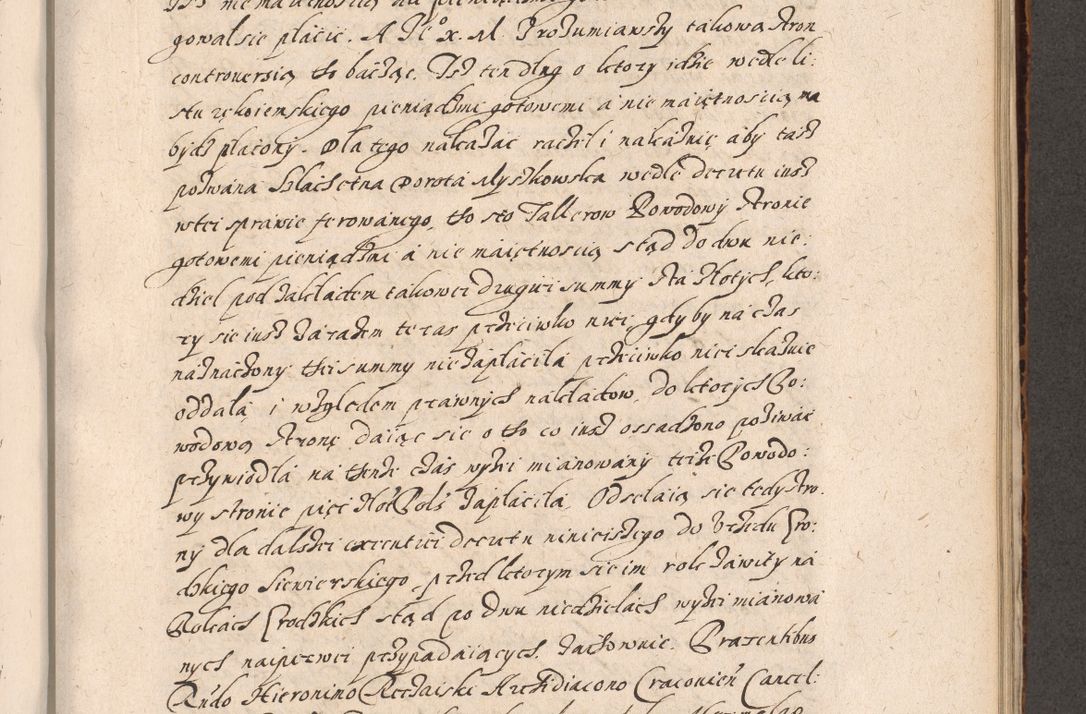 gował sie płacic. A Je° X. M. Zrozumiawszy takową stron
controuersią to bacząc. Isz ten dług o ktory idzie wedle li:
stu rękoiemskiego pieniądzmi gotowemi a nie maiętnoscią ma
bydz płacony. Dla tego nakazac raczeli i nakazuię aby tasz
pozwana Szlachetna Dorota Myszkowska wedle decretu iusz
wtei sprawie ferowanego, to sto Tallerow Powodowy stronie
gotowemi pieniądzmi a nie maiętnoscią stąd do dwu nie:
dziel pod zakładem takowei drugiei summy sta złotych, kto:
ry sie iusz zarazem teraz przeciwko niei, gdyby na czas
naznaczony tei summy nie zapłaciła przeciwko niei skazuie
oddała, i względem prawnych nakładow, do ktorych Po:
wodową stronę daiąc sie o to co iusz ossadzono poziwac
przywiodła na tenze czas wyzei mianowany teize Powodo:
wy stronie pięc złot Pols zapłaciła. Odsełaią się tedy stro:
ny dla dalszei executiei decretu ninieiszego do Vrzędu Gro:
dzkiego Siewierskiego, przed ktorym sie im rok zawity na
Rokach Grodzkich stąd po dwu niedzielach wyzei mianowa
nych napierwei przypadaiących, zachownie. Præsentibus
Rndo Hieronino Rechaiski Archidiacono Cracouien Cancel: